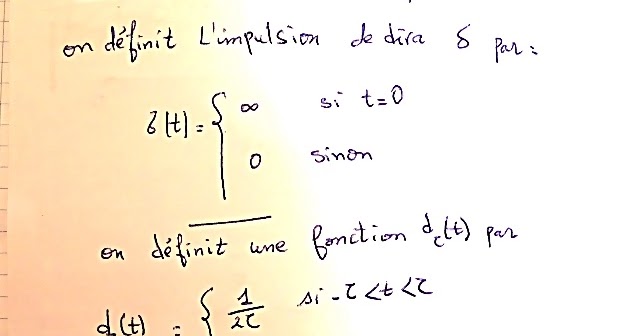 on définit L'impulsion de dira δ par :
δ(t) = { ∞ si t=0
0 sinon
on définit une fonction d_τ(t) par
d_τ(t) = { 1/2τ si -τ < t < τ